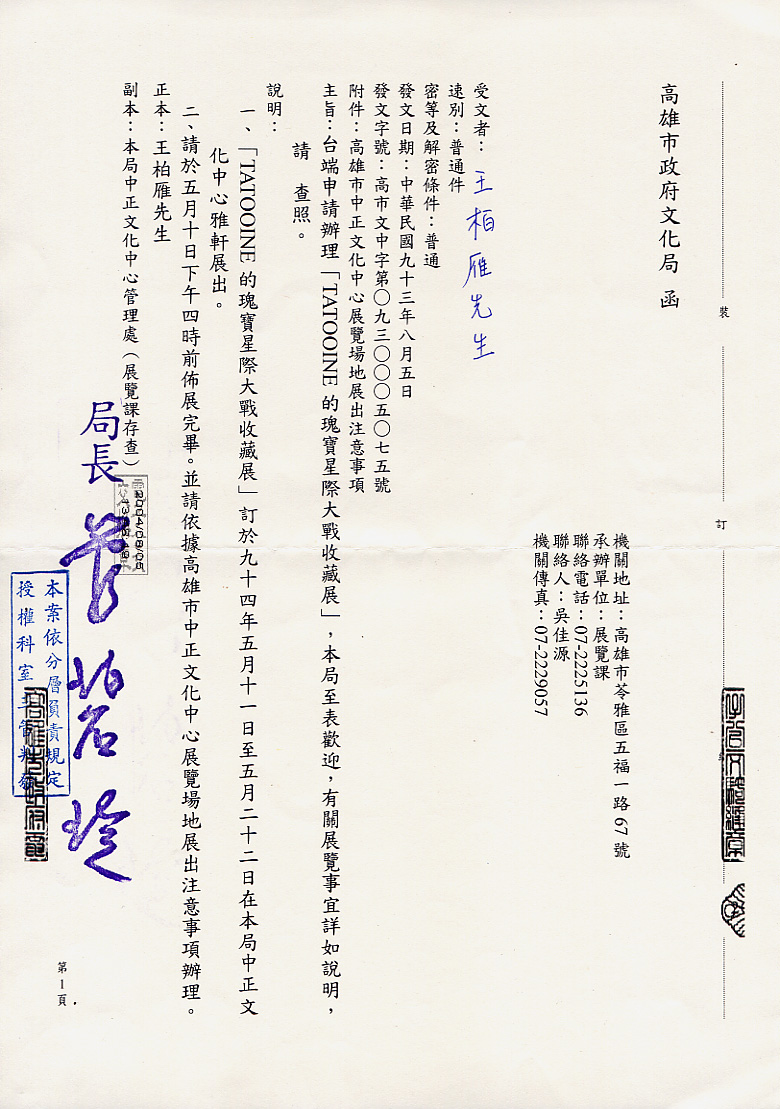 高雄市政府文化局 函
機關地址：高雄市苓雅區五福一路67號
承辦單位：展覽課
聯絡電話：07-2225136
聯絡人：吳佳源
機關傳真：07-2229057
受文者：王柏雁先生
速別：普通件
密等及解密條件：普通
發文日期：中華民國九十三年八月五日
發文字號：高市文中字第〇九三〇〇〇五〇七五號
附件：高雄市中正文化中心展覽場地展出注意事項
主旨：台端申請辦理「TATOOINE 的瑰寶星際大戰收藏展」，本局至表歡迎，有關展覽事宜詳如說明，
請 查照。
說明：
一、「TATOOINE 的瑰寶星際大戰收藏展」訂於九十四年五月十一日至五月二十二日在本局中正文
化中心雅軒展出。
二、請於五月十日下午四時前佈展完畢。並請依據高雄市中正文化中心展覽場地展出注意事項辦理。
正本：王柏雁先生
副本：本局中正文化中心管理處（展覽課存查）
局長
本案依分層負責規定
授權科室主管判發
第1頁
裝
訂